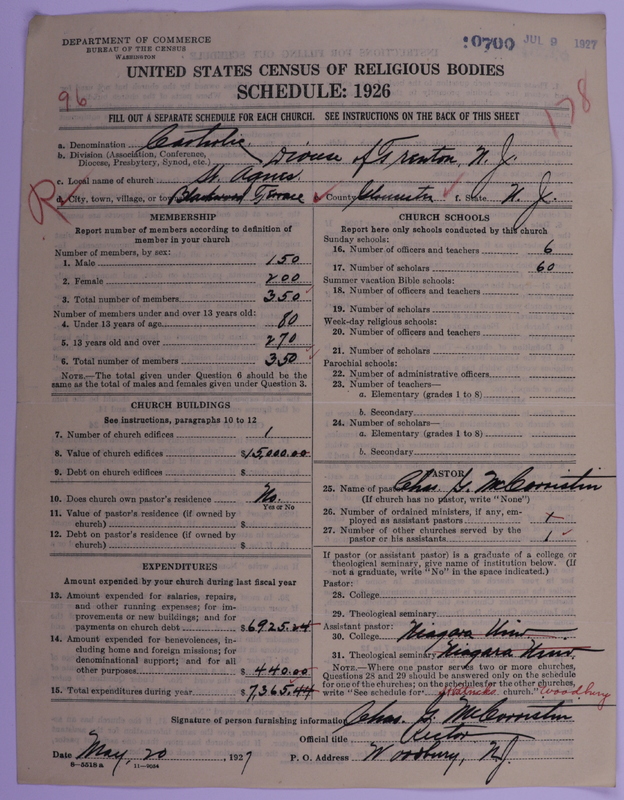 DEPARTMENT OF COMMERCE
BUREAU OF THE CENSUS
WASHINGTON
10700 JUL 9 1927
UNITED STATES CENSUS OF RELIGIOUS BODIES
SCHEDULE: 1926
96
178
FILL OUT A SEPARATE SCHEDULE FOR EACH CHURCH. SEE INSTRUCTIONS ON THE BACK OF THIS SHEET
a. Denomination Catholic
b. Division (Association, Conference, Diocese, Presbytery, Synod, etc.) Diocese of Trenton, N. J.
c. Local name of church St. Agnes.
R
d. City, town, village, or township Blackwood Terrace County Gloucester f. State N. J.
MEMBERSHIP
Report number of members according to definition of
member in your church
Number of members, by sex:
1. Male 150
2. Female 200
3. Total number of members 350
Number of members under and over 13 years old:
4. Under 13 years of age 80
5. 13 years old and over 270
6. Total number of members 350
NOTE.—The total given under Question 6 should be the
same as the total of males and females given under Question 3.
CHURCH BUILDINGS
See instructions, paragraphs 10 to 12
7. Number of church edifices 1
8. Value of church edifices $15,000.00
9. Debt on church edifices $
10. Does church own pastor's residence No.
Yes or No
11. Value of pastor's residence (if owned by
church) $
12. Debt on pastor's residence (if owned by
church) $
EXPENDITURES
Amount expended by your church during last fiscal year
13. Amount expended for salaries, repairs,
and other running expenses; for im-
provements or new buildings; and for
payments on church debt $6925.44
14. Amount expended for benevolences, in-
cluding home and foreign missions; for
denominational support; and for all
other purposes $440.00
15. Total expenditures during year $7,365.44
CHURCH SCHOOLS
Report here only schools conducted by this church
Sunday schools:
16. Number of officers and teachers 6
17. Number of scholars 60
Summer vacation Bible schools:
18. Number of officers and teachers
19. Number of scholars
Week-day religious schools:
20. Number of officers and teachers
21. Number of scholars
Parochial schools:
22. Number of administrative officers
23. Number of teachers—
a. Elementary (grades 1 to 8)
b. Secondary
24. Number of scholars—
a. Elementary (grades 1 to 8)
b. Secondary
PASTOR
25. Name of pastor Chas. G. McCorristin
(If church has no pastor, write "None")
26. Number of ordained ministers, if any, em-
ployed as assistant pastors 1
27. Number of other churches served by the
pastor or his assistants 1
If pastor (or assistant pastor) is a graduate of a college or
theological seminary, give name of institution below. (If
not a graduate, write "No" in the space indicated.)
Pastor:
28. College
29. Theological seminary
Assistant pastor:
30. College Niagara Univ
31. Theological seminary Niagara Univ.
NOTE.—Where one pastor serves two or more churches,
Questions 28 and 29 should be answered only on the schedule
for one of the churches; on the schedules for the other churches,
write "See schedule for St Patricks church." Woodbury
Signature of person furnishing information Chas. G. McCorristin
Official title Rector
Date May, 20, 1927 P. O. Address Woodbury, N.J.
8—5518a 11—9034